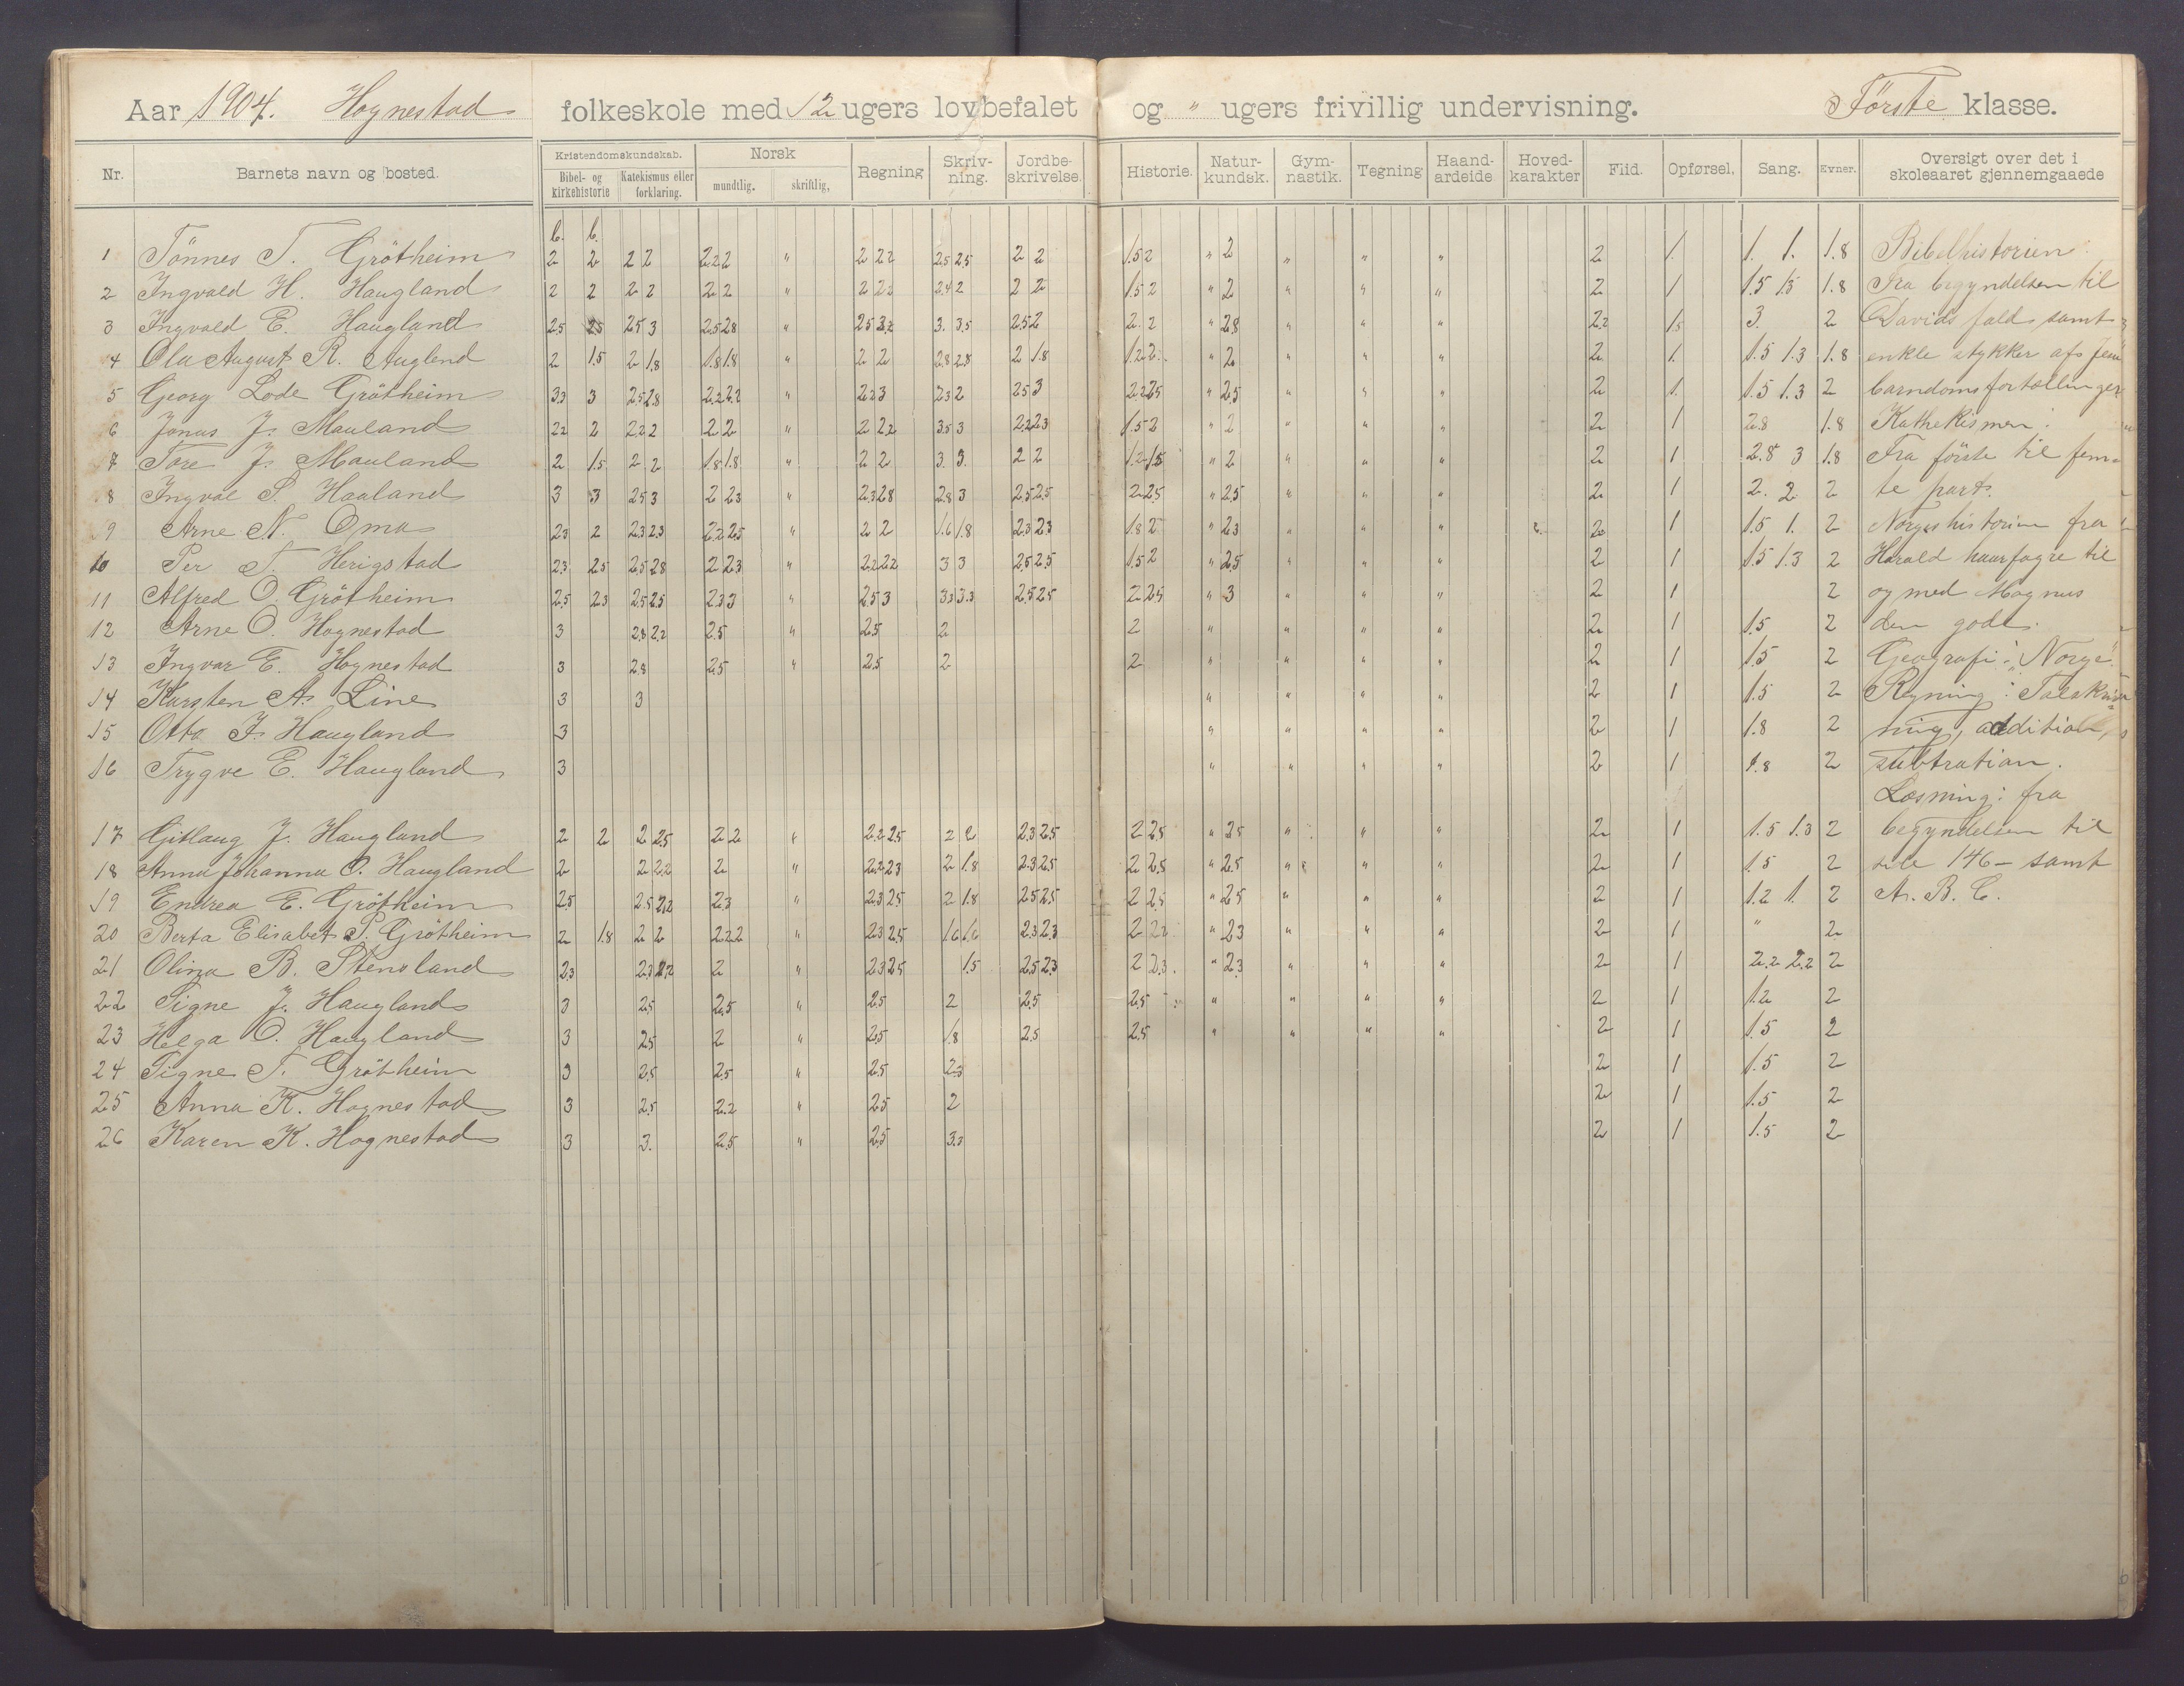 Aar 1904. Hognestad folkeskole med 12 ugers lovbefalet og " ugers frivillig undervisning. Første klasse.
Nr. Barnets navn og bosted. Kristendomskundskab. Norsk Regning Skriv-ning. Jordbe-skrivelse. Historie. Natur-kundsk. Gym-nastik. Tegning Haand-arbeide Hoved-karakter Flid. Opførsel. Sang. Evner. Oversigt over det i skoleaaret gjennemgaaede
Bibel- og kirkehistorie Katekismus eller forklaring. mundtlig. skriftlig,
b. b.
1 Tönnes T. Grötheim 2 2 2 2 2.2 2 " 2 2.2 2.5 2.5 2 2 1.5 2 " 2 " " " 2 1. 1. 1. 1.8 Bibelhistorien:
2 Ingvald H. Haugland 2 2 2 2 2 2 " 2 2.2 2.4 2 2 2 1.5 2 " 2 " " " 2 1 1.5 1.5 1.8 Fra begyndelsen til
3 Ingvald E. Haugland 2.5 2.5 2.5 3 2.5 2.8 " 2.5 3.2 3. 3.5 2.5 2 2. 2 " 2.8 " " " 2.2 1.5 3. 2 Davids fald samt
4 Ola August R. Auglend 2 1.5 2 1.8 1.8 1.8 " 2 2 2.8 2.8 2 1.8 1.2 2. " 2 " " " 2 1. 1.5 1.3 1.8 enkle stykker af Jesu
5 Georg Lode Grötheim 3.3 3 2.5 2.8 2.2 2.2 " 2.2 3 2.3 2 2.5 3 2.2 2.5 " 2.5 " " " 2 1. 1.5 1.3 2 barndomsfortællinger
6 Jonas J. Mauland 2.2 2 2.2 2 2 2 " 2 2.2 3.5 3 2.2 2.3 1.5 2 " 2 " " " 2 1 2.8 1.8 Kathekismen:
7 Tore J. Mauland 2 1.5 2 2 1.8 1.8 " 2 2 3. 3. 2 2 1.2 1.5 " 2 " " " 2 1 2.8 3 1.8 Fra første til fem-
8 Ingval S. Haaland 3 3 2.5 3 2 2.3 " 2.3 2.8 2.8 3 2.5 2.5 2 2.5 " 2.5 " " " 2 1 2. 2 2 te part.
9 Arne N. Oma 2.3 2 2.3 2.3 2.2 2.5 " 2 2 1.6 1.8 2.3 2.3 1.8 2 " 2.3 " " " 2 1 1.5 1. 2 Norges historie fra
10 Per T. Herigstad 2.3 2.5 2.5 2.8 2 2.3 " 2.2 2.2 3 3 2.5 2.5 1.5 2 " 2.5 " " " 2 1 1.5 1.3 2 Harald haarfagre til
11 Alfred O. Grötheim 2.5 2.3 2.5 2.5 2.3 3 " 2.5 3 3.3 3.3 2.5 2.5 2 2.5 " 3 " " " 2 1 2 og med Magnus
12 Arne O. Hognestad 3 2.8 2.2 2.5 " 2.5 2 2 " " " " 2 1 1.5 2 den gode.
13 Ingvar E. Hognestad 3 2.8 2.5 " 2.5 2 2 " " " " 2 1 1.5 2 Geografi: "Norge".
14 Karsten A. Line 3 3 " " " " 2 1 1.5 2 Regning: Talskriv-
15 Otto J. Haugland 3 " " " " 2 1 1.8 2 ning, addition,
16 Trygve E. Haugland 3 " " " " 2 1 1.8 2 subtration.
Læsning: fra
17 Gitlaug J. Haugland 2 2 2 2.5 2 2 " 2.2 2.5 2 2 2.3 2.5 2 2.5 " 2.5 " " " 2 1 1.5 1.3 2 begyndelsen til
18 Anna Johanna O. Haugland 2 2 2.2 2 " 2.2 2.3 2 1.8 2.3 2.5 2 2.5 " 2.5 " " " 2 1 1.5 2 side 146 – samt
19 Endrea E. Grötheim 2.5 2.5 2.2 2.3 " 2.3 2.5 2 1.8 2.5 2.5 2 2.5 " 2.5 " " " 2 1 1.2 1. 2 A. B. C.
20 Berta Elisabet S. Grötheim 2 1.8 2 2 2.2 2 " 2.3 2.5 1.6 1.6 2.3 2.3 2 2.2 " 2.3 " " " 2 1 " 2
21 Olina B. Stensland 2.3 2.3 2.2 2 " 2.3 2.5 1.5 2.5 2.3 2 2.3. " 2.3 " " " 2 1 2.2 2.2 2
22 Signe J. Haugland 3 2.5 2.5 " 2.5 2 2.5 2.5 " " " " 2 1 1.2 2
23 Helga O. Haugland 3 2.5 2 " 2.5 1.8 2.5 2.5 " " " " 2 1 1.5 2
24 Signe T. Grötheim 3 2.5 2.5 " 2.5 2.3 2 1 1.5 2
25 Anna K. Hognestad 3 2.5 2.2 " 2.5 2 2 1 1.5 2
26 Karen K. Hognestad 3 3. 2.5 " 2.5 3.3 2 1 1.5 2